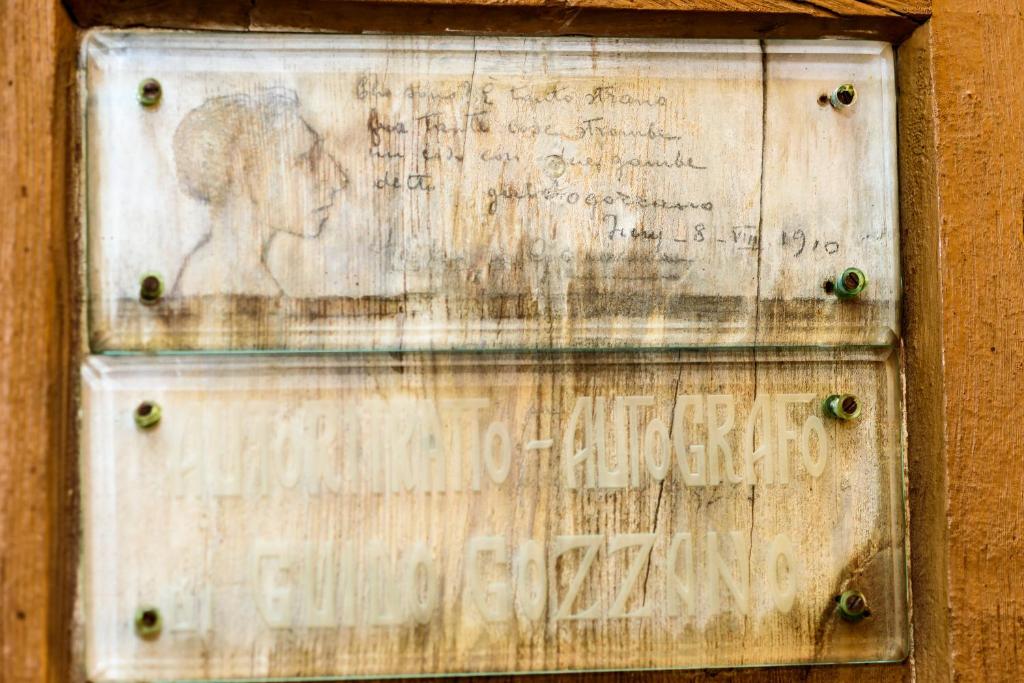 Chi sono? È tanto strano
fra tante cose strambe
un coso con due gambe
detto guidogozzano
8-VIII 1910
AUTORITRATTO-AUTOGRAFO
DI GUIDO GOZZANO